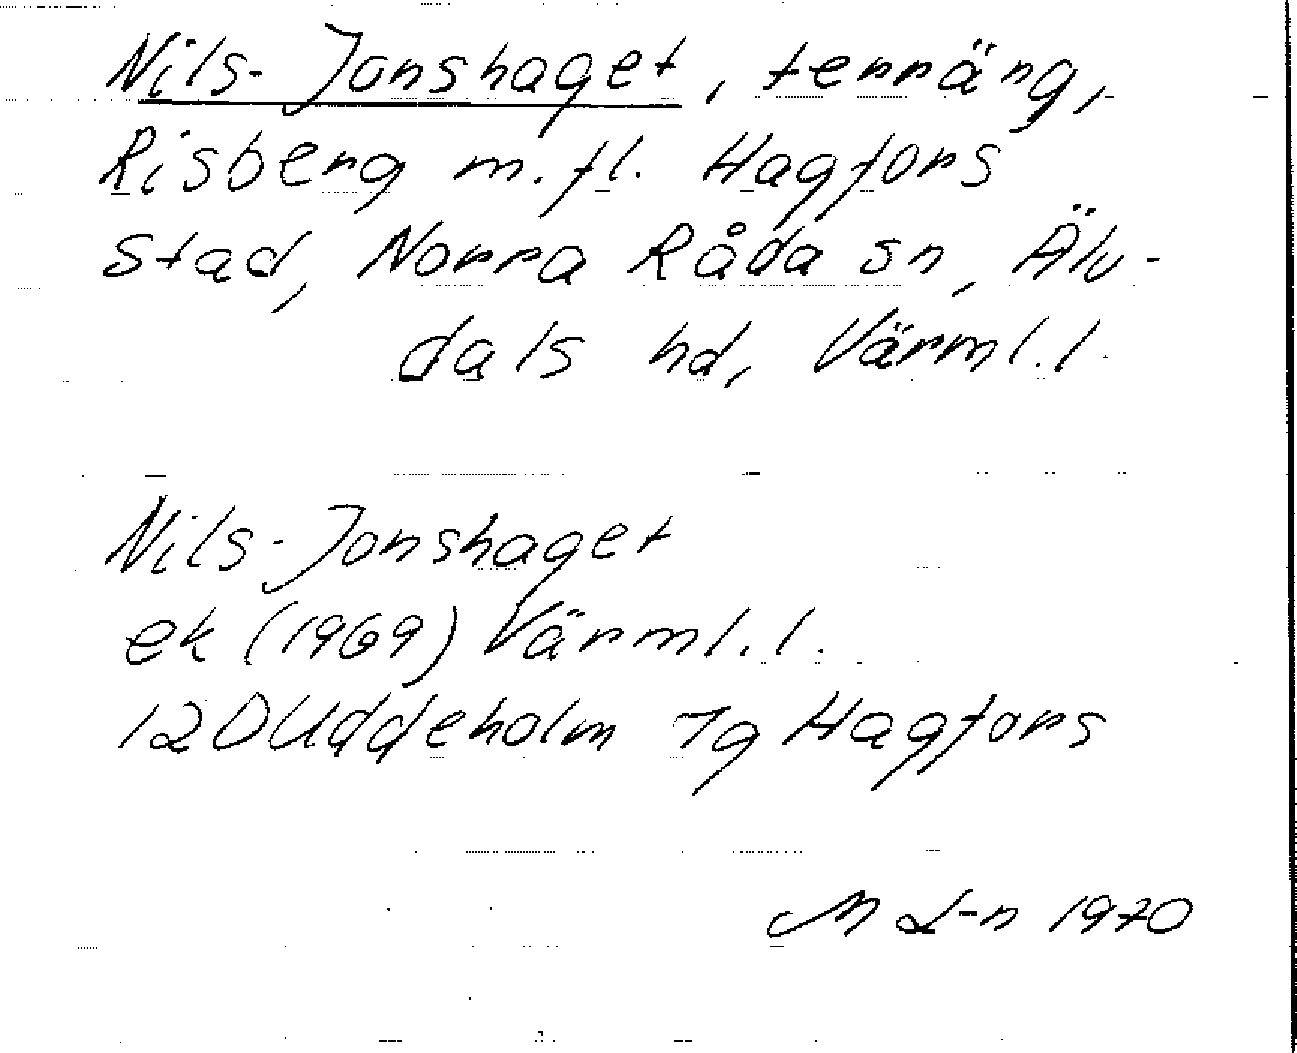 Nils-Jonshaget, terräng,
Risberg m.fl. Hagfors
stad, Norra Råda sn, Älv-
dals hd, Värml.l.
Nils-Jonshaget
ek (1969) Värml.l.
12D Uddeholm 7g Hagfors
M L-n 1970